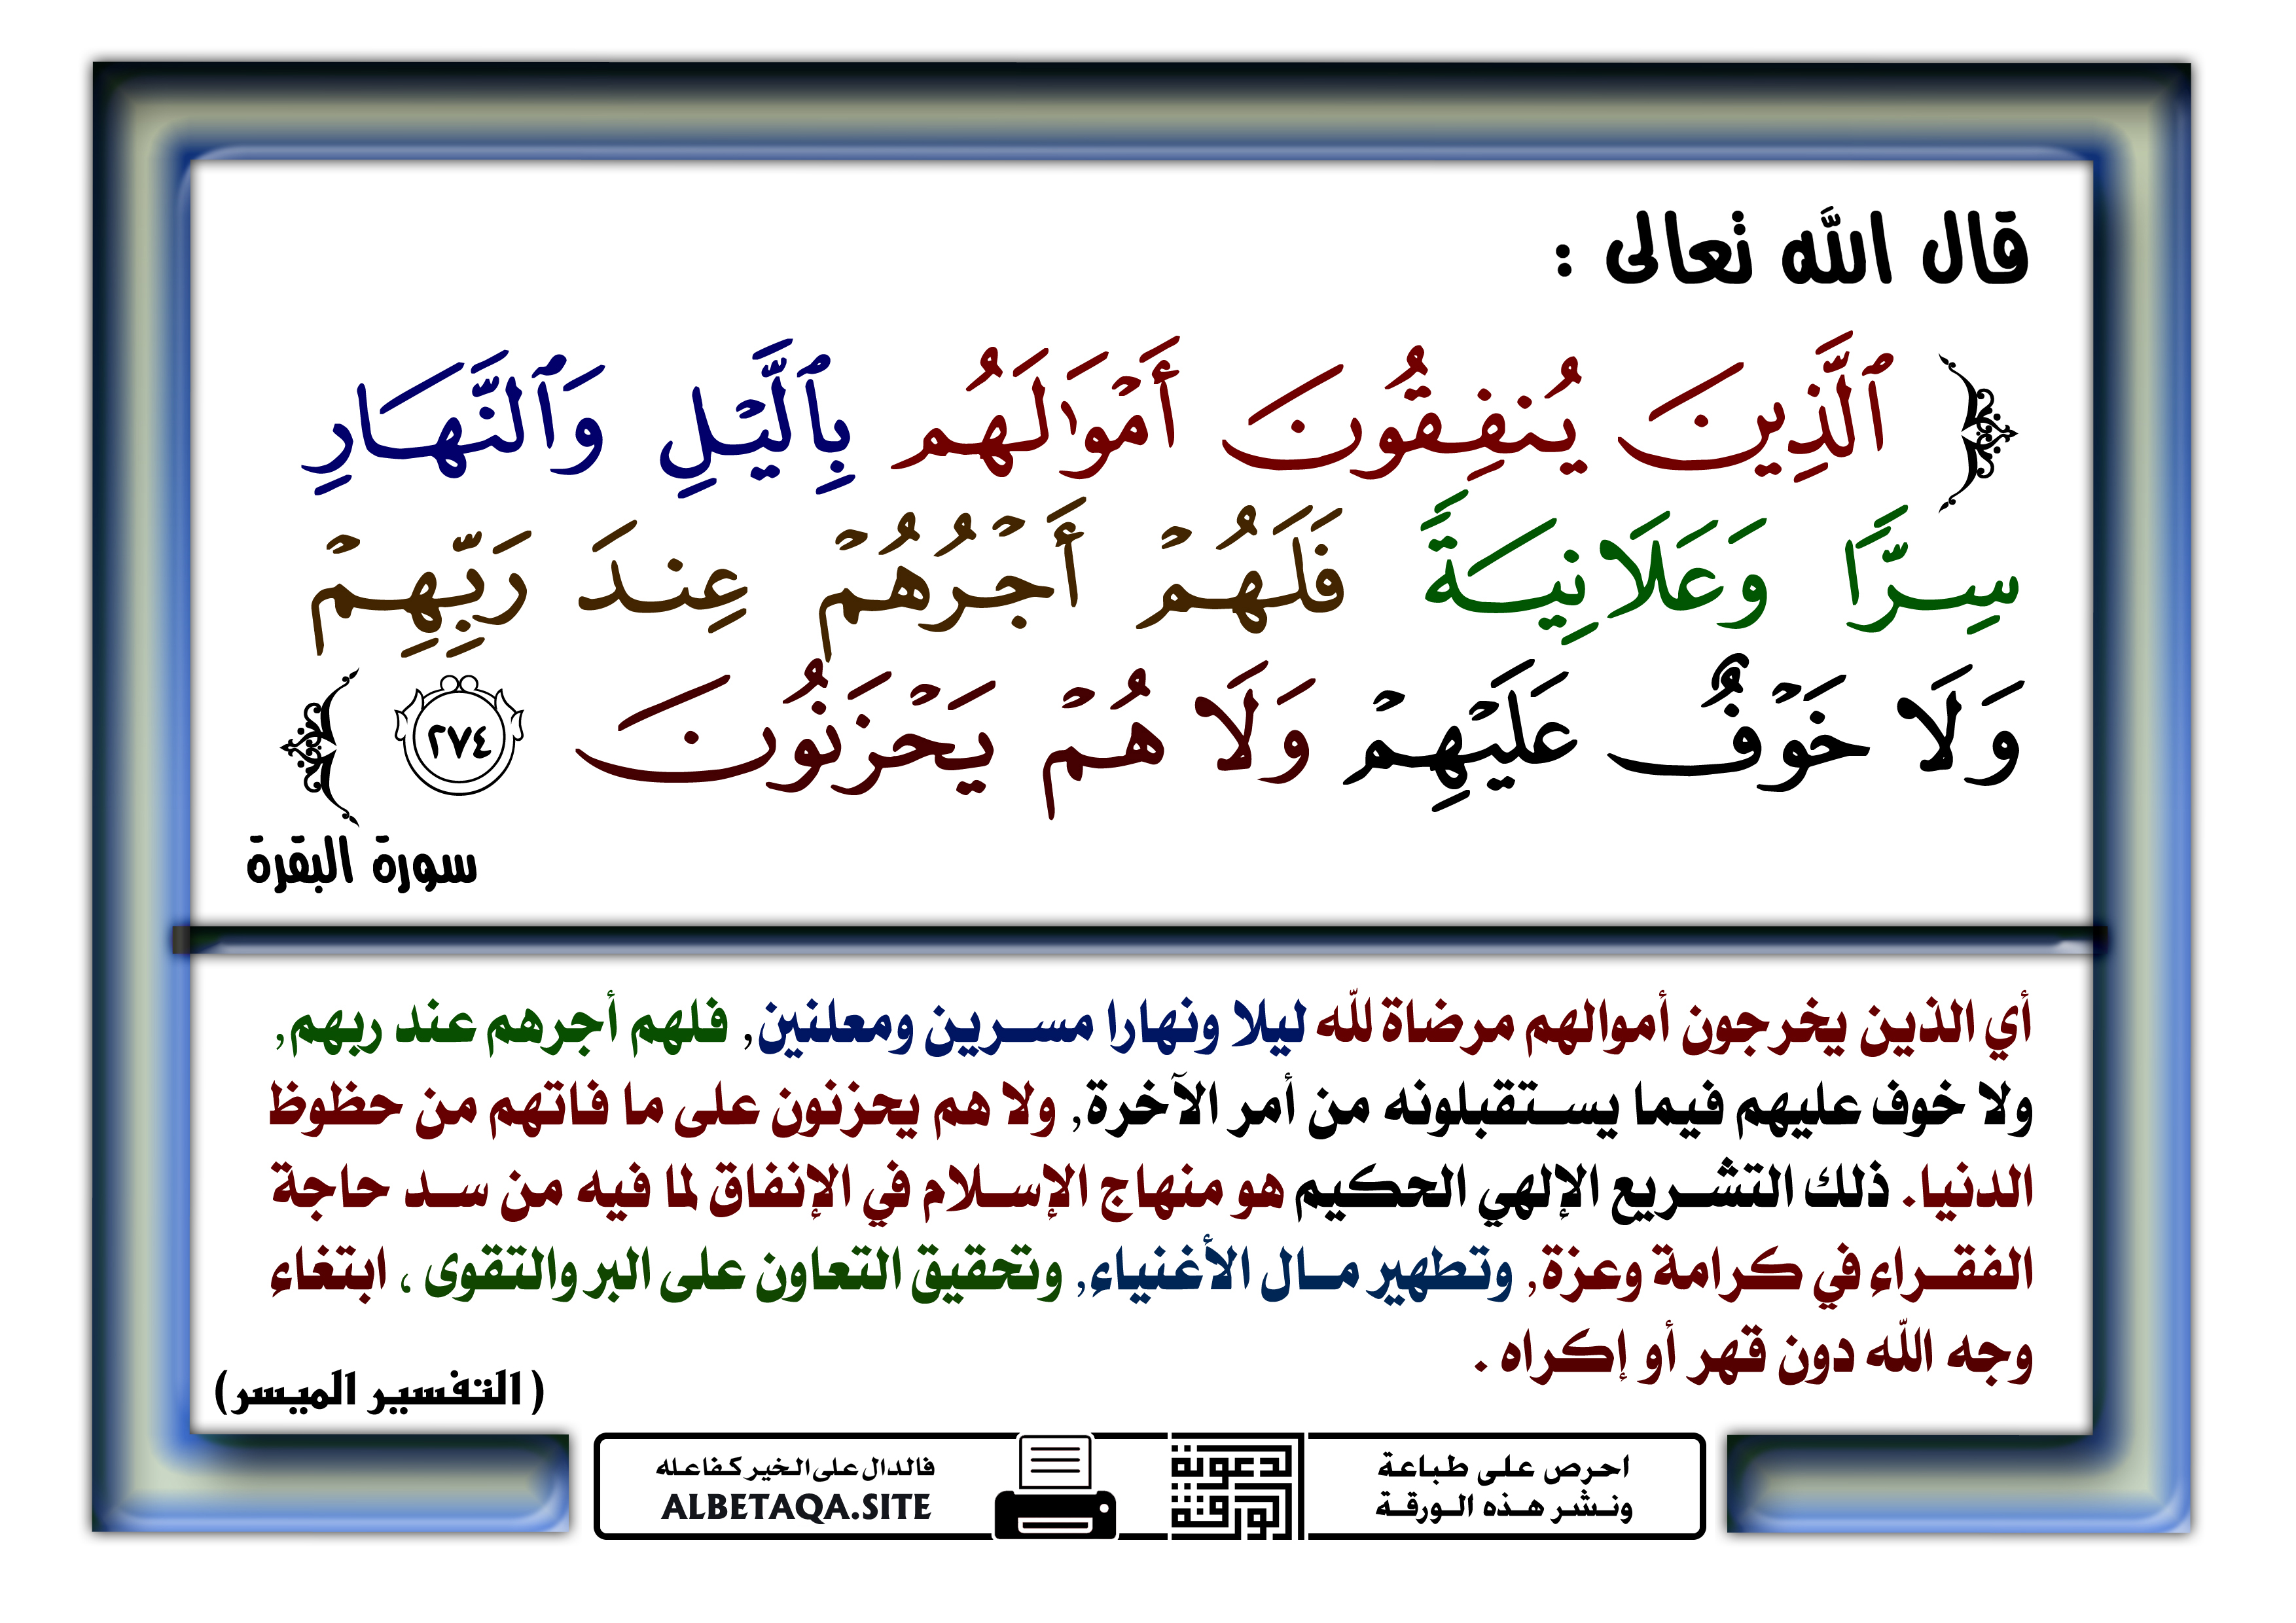 قال الله تعالى :
ٱلَّذِينَ يُنفِقُونَ أَمۡوَٰلَهُم بِٱلَّيۡلِ وَٱلنَّهَارِ
سِرّٗا وَعَلَانِيَةٗ فَلَهُمۡ أَجۡرُهُمۡ عِندَ رَبِّهِمۡ
وَلَا خَوۡفٌ عَلَيۡهِمۡ وَلَا هُمۡ يَحۡزَنُونَ ٢٧٤
سورة البقرة
أي الذين يخرجون أموالهم مرضاة لله ليلا ونهارا مسرين ومعلنين, فلهم أجرهم عند ربهم,
ولا خوف عليهم فيما يستقبلونه من أمر الآخرة, ولا هم يحزنون على ما فاتهم من حظوظ
الدنيا. ذلك التشريع الإلهي الحكيم هو منهاج الإسلام في الإنفاق لما فيه من سد حاجة
الفقراء في كرامة وعزة, وتطهير مال الأغنياء, وتحقيق التعاون على البر والتقوى ، ابتغاء
وجه الله دون قهر أو إكراه .
( التفسير الميسر)
احرص على طباعة
ونشر هذه الورقة
الدعوية
الورقة
فالدال على الخير كفاعله
ALBETAQA.SITE